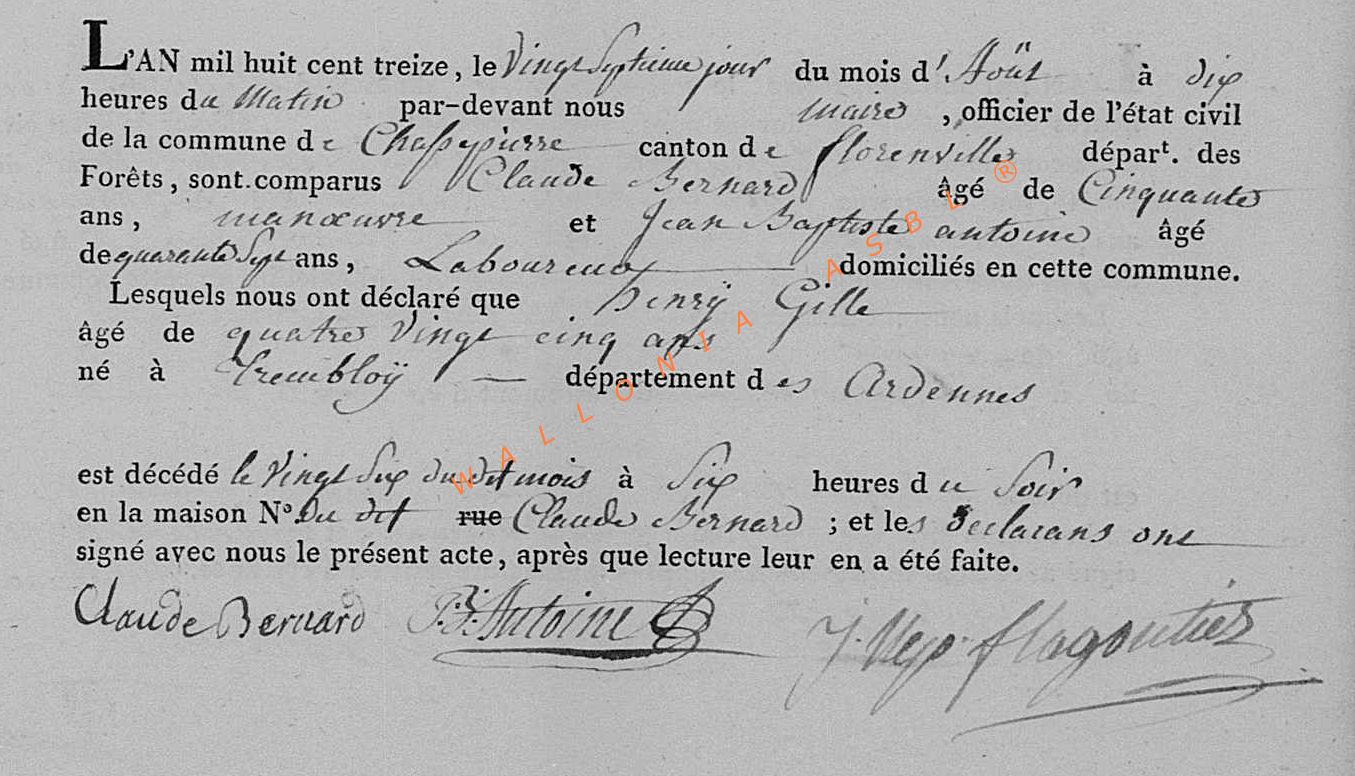 L'AN mil huit cent treize, le Vingt Septieme jour du mois d'Aöut à dix
heures du Matin par-devant nous maire, officier de l'état civil
de la commune de Chassepierre canton de florenville départ. des
Forêts, sont comparus Claude Bernard âgé de Cinquante
ans, manœuvre et Jean Baptiste antoine âgé
de quarante Sept ans, Laboureur domiciliés en cette commune.
Lesquels nous ont déclaré que henrÿ Gille
âgé de quatre Vingt cinq ans
né à Trembloÿ département des Ardennes
est décédé le Vingt Six du dit mois à Six heures du Soir
en la maison Nº. Du dit rue Claude Bernard ; et les Declarans ont
signé avec nous le présent acte, après que lecture leur en a été faite.
Claude Bernard J.B. Antoine J. Nep. flagontier
WALLONIA ASBL ®